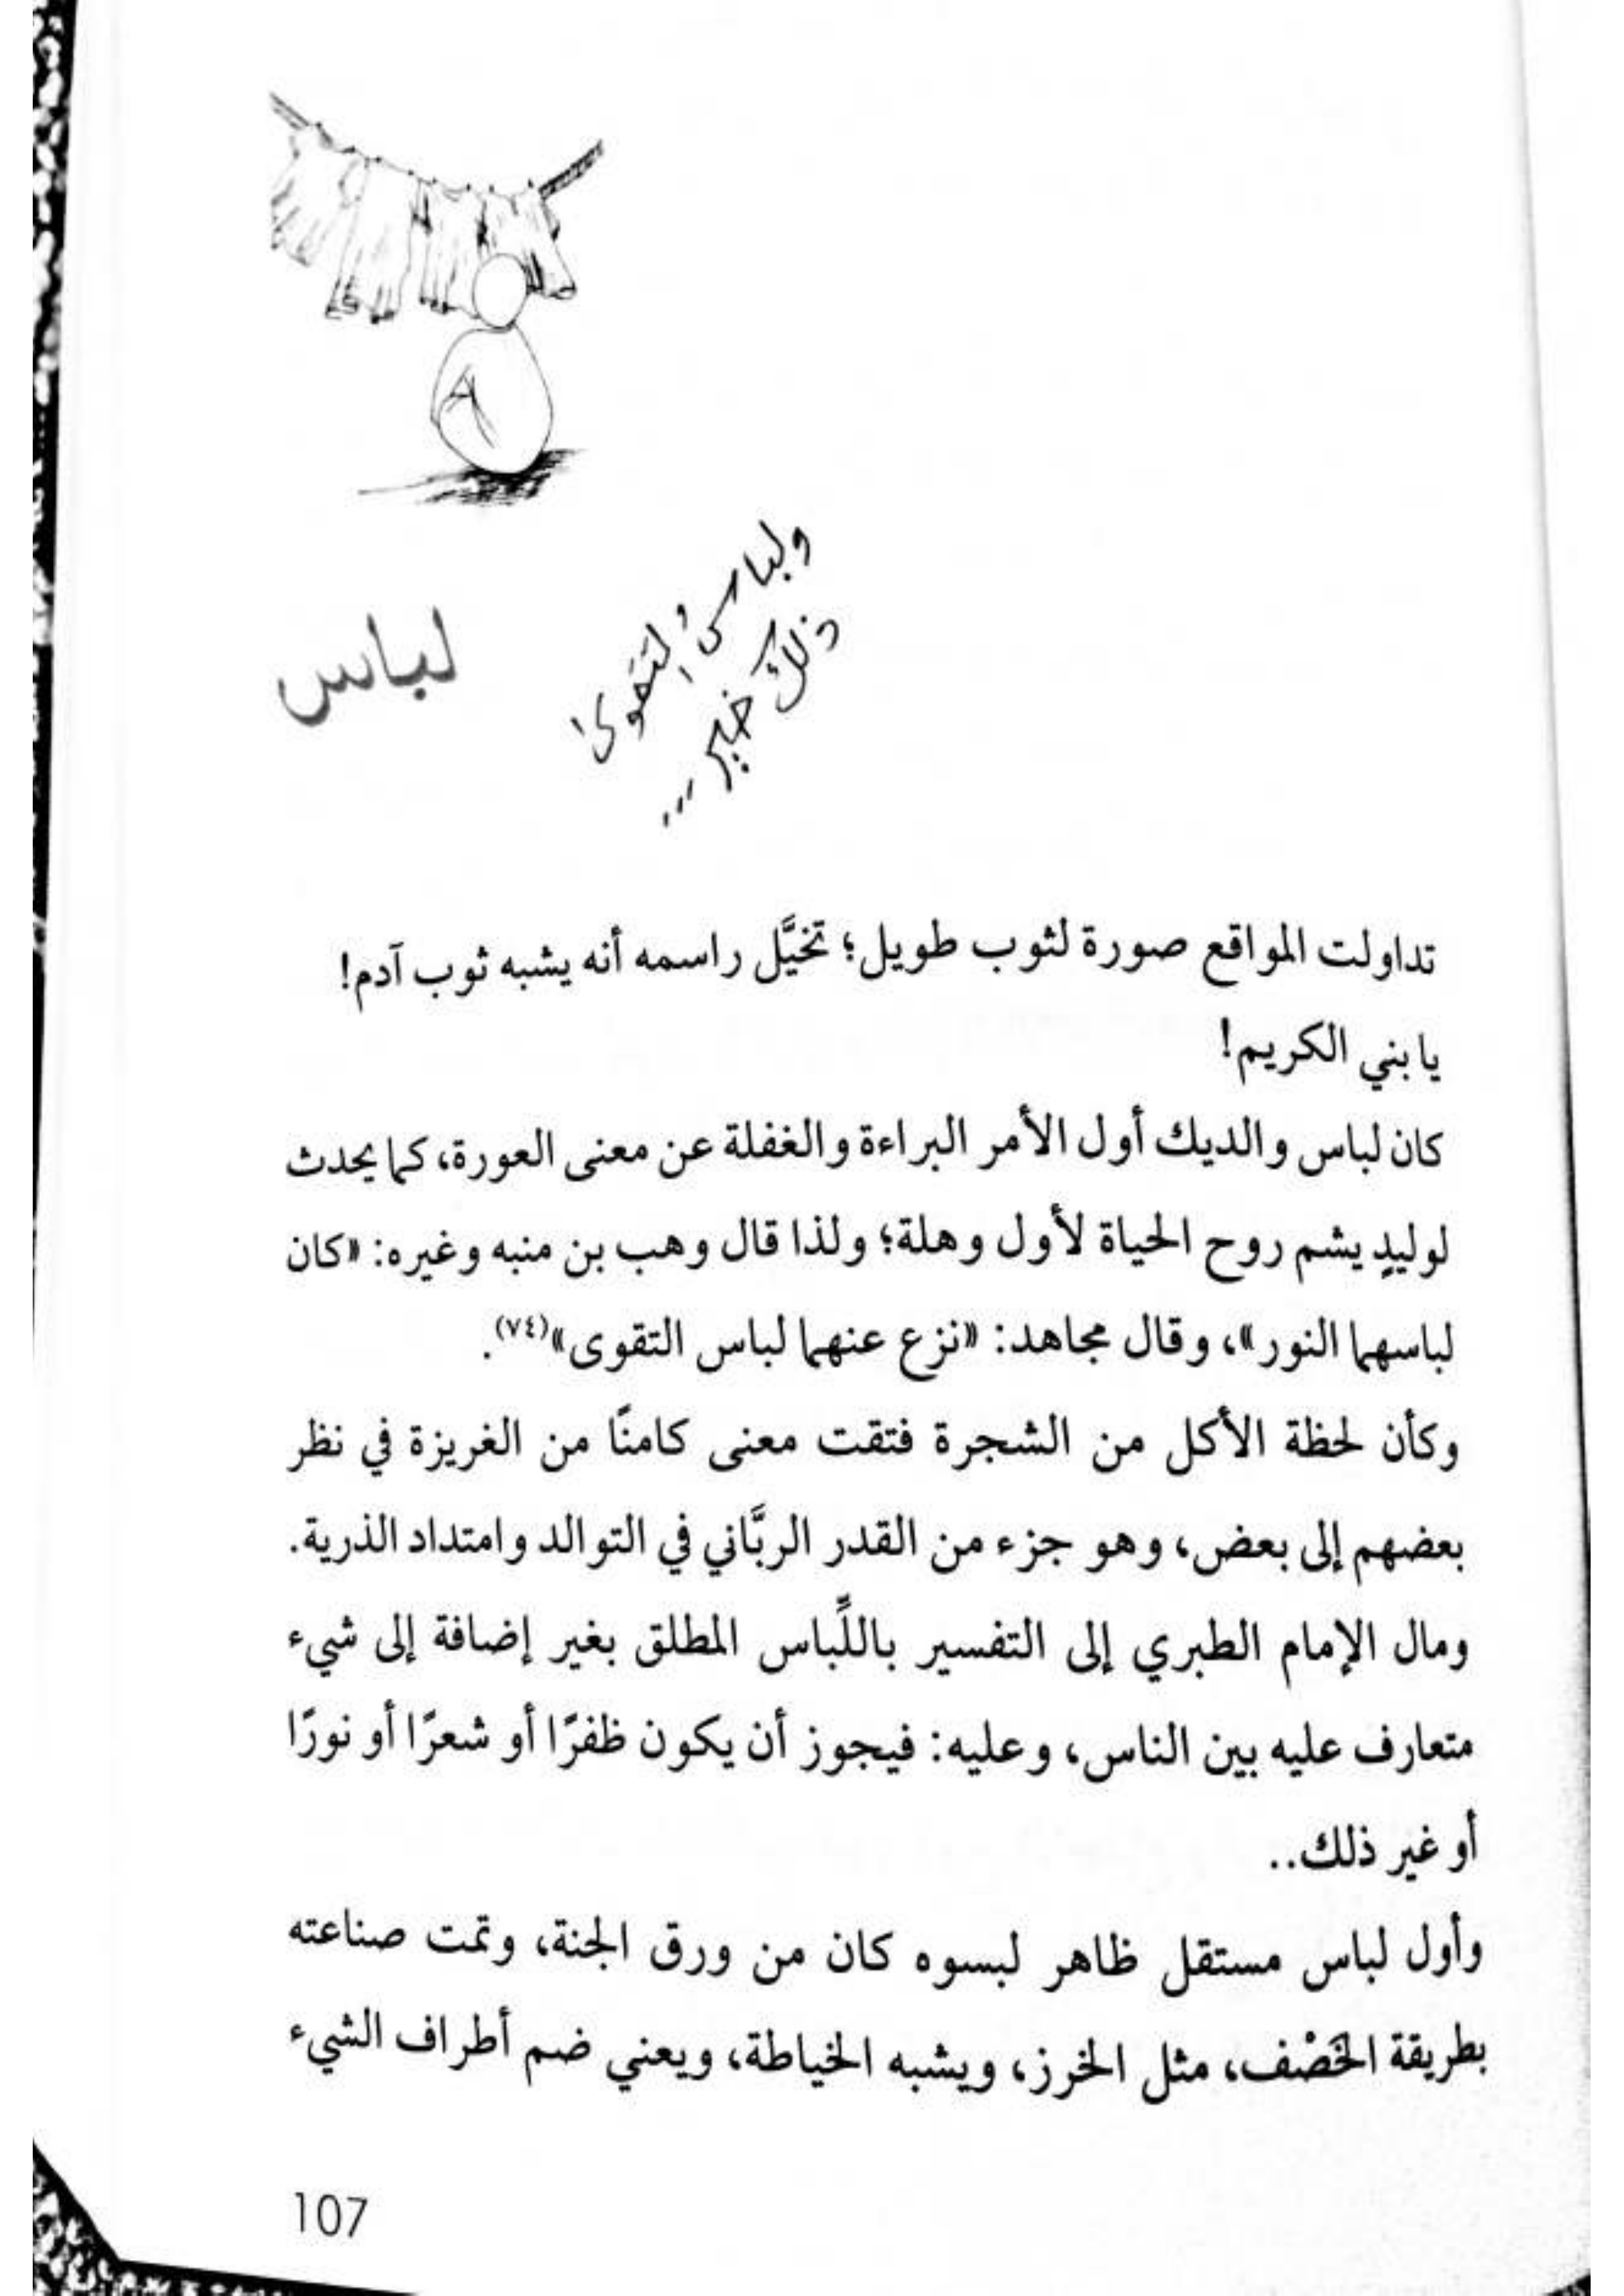 ولباسُ التقوىٰ
ذلكَ خير ...
لباس
تداولت المواقع صورة لثوب طويل؛ تخيَّل راسمه أنه يشبه ثوب آدم!
يا بني الكريم!
كان لباس والديك أول الأمر البراءة والغفلة عن معنى العورة، كما يحدث
لوليدٍ يشم روح الحياة لأول وهلة؛ ولذا قال وهب بن منبه وغيره: «كان
لباسهما النور»، وقال مجاهد: «نزع عنهما لباس التقوى»(٧٤).
وكأن لحظة الأكل من الشجرة فتقت معنى كامنًا من الغريزة في نظر
بعضهم إلى بعض، وهو جزء من القدر الربَّاني في التوالد وامتداد الذرية.
ومال الإمام الطبري إلى التفسير باللِّباس المطلق بغير إضافة إلى شيء
متعارف عليه بين الناس، وعليه: فيجوز أن يكون ظفرًا أو شعرًا أو نورًا
أو غير ذلك..
وأول لباس مستقل ظاهر لبسوه كان من ورق الجنة، وتمت صناعته
بطريقة الخَصْف، مثل الخرز، ويشبه الخياطة، ويعني ضم أطراف الشيء
107